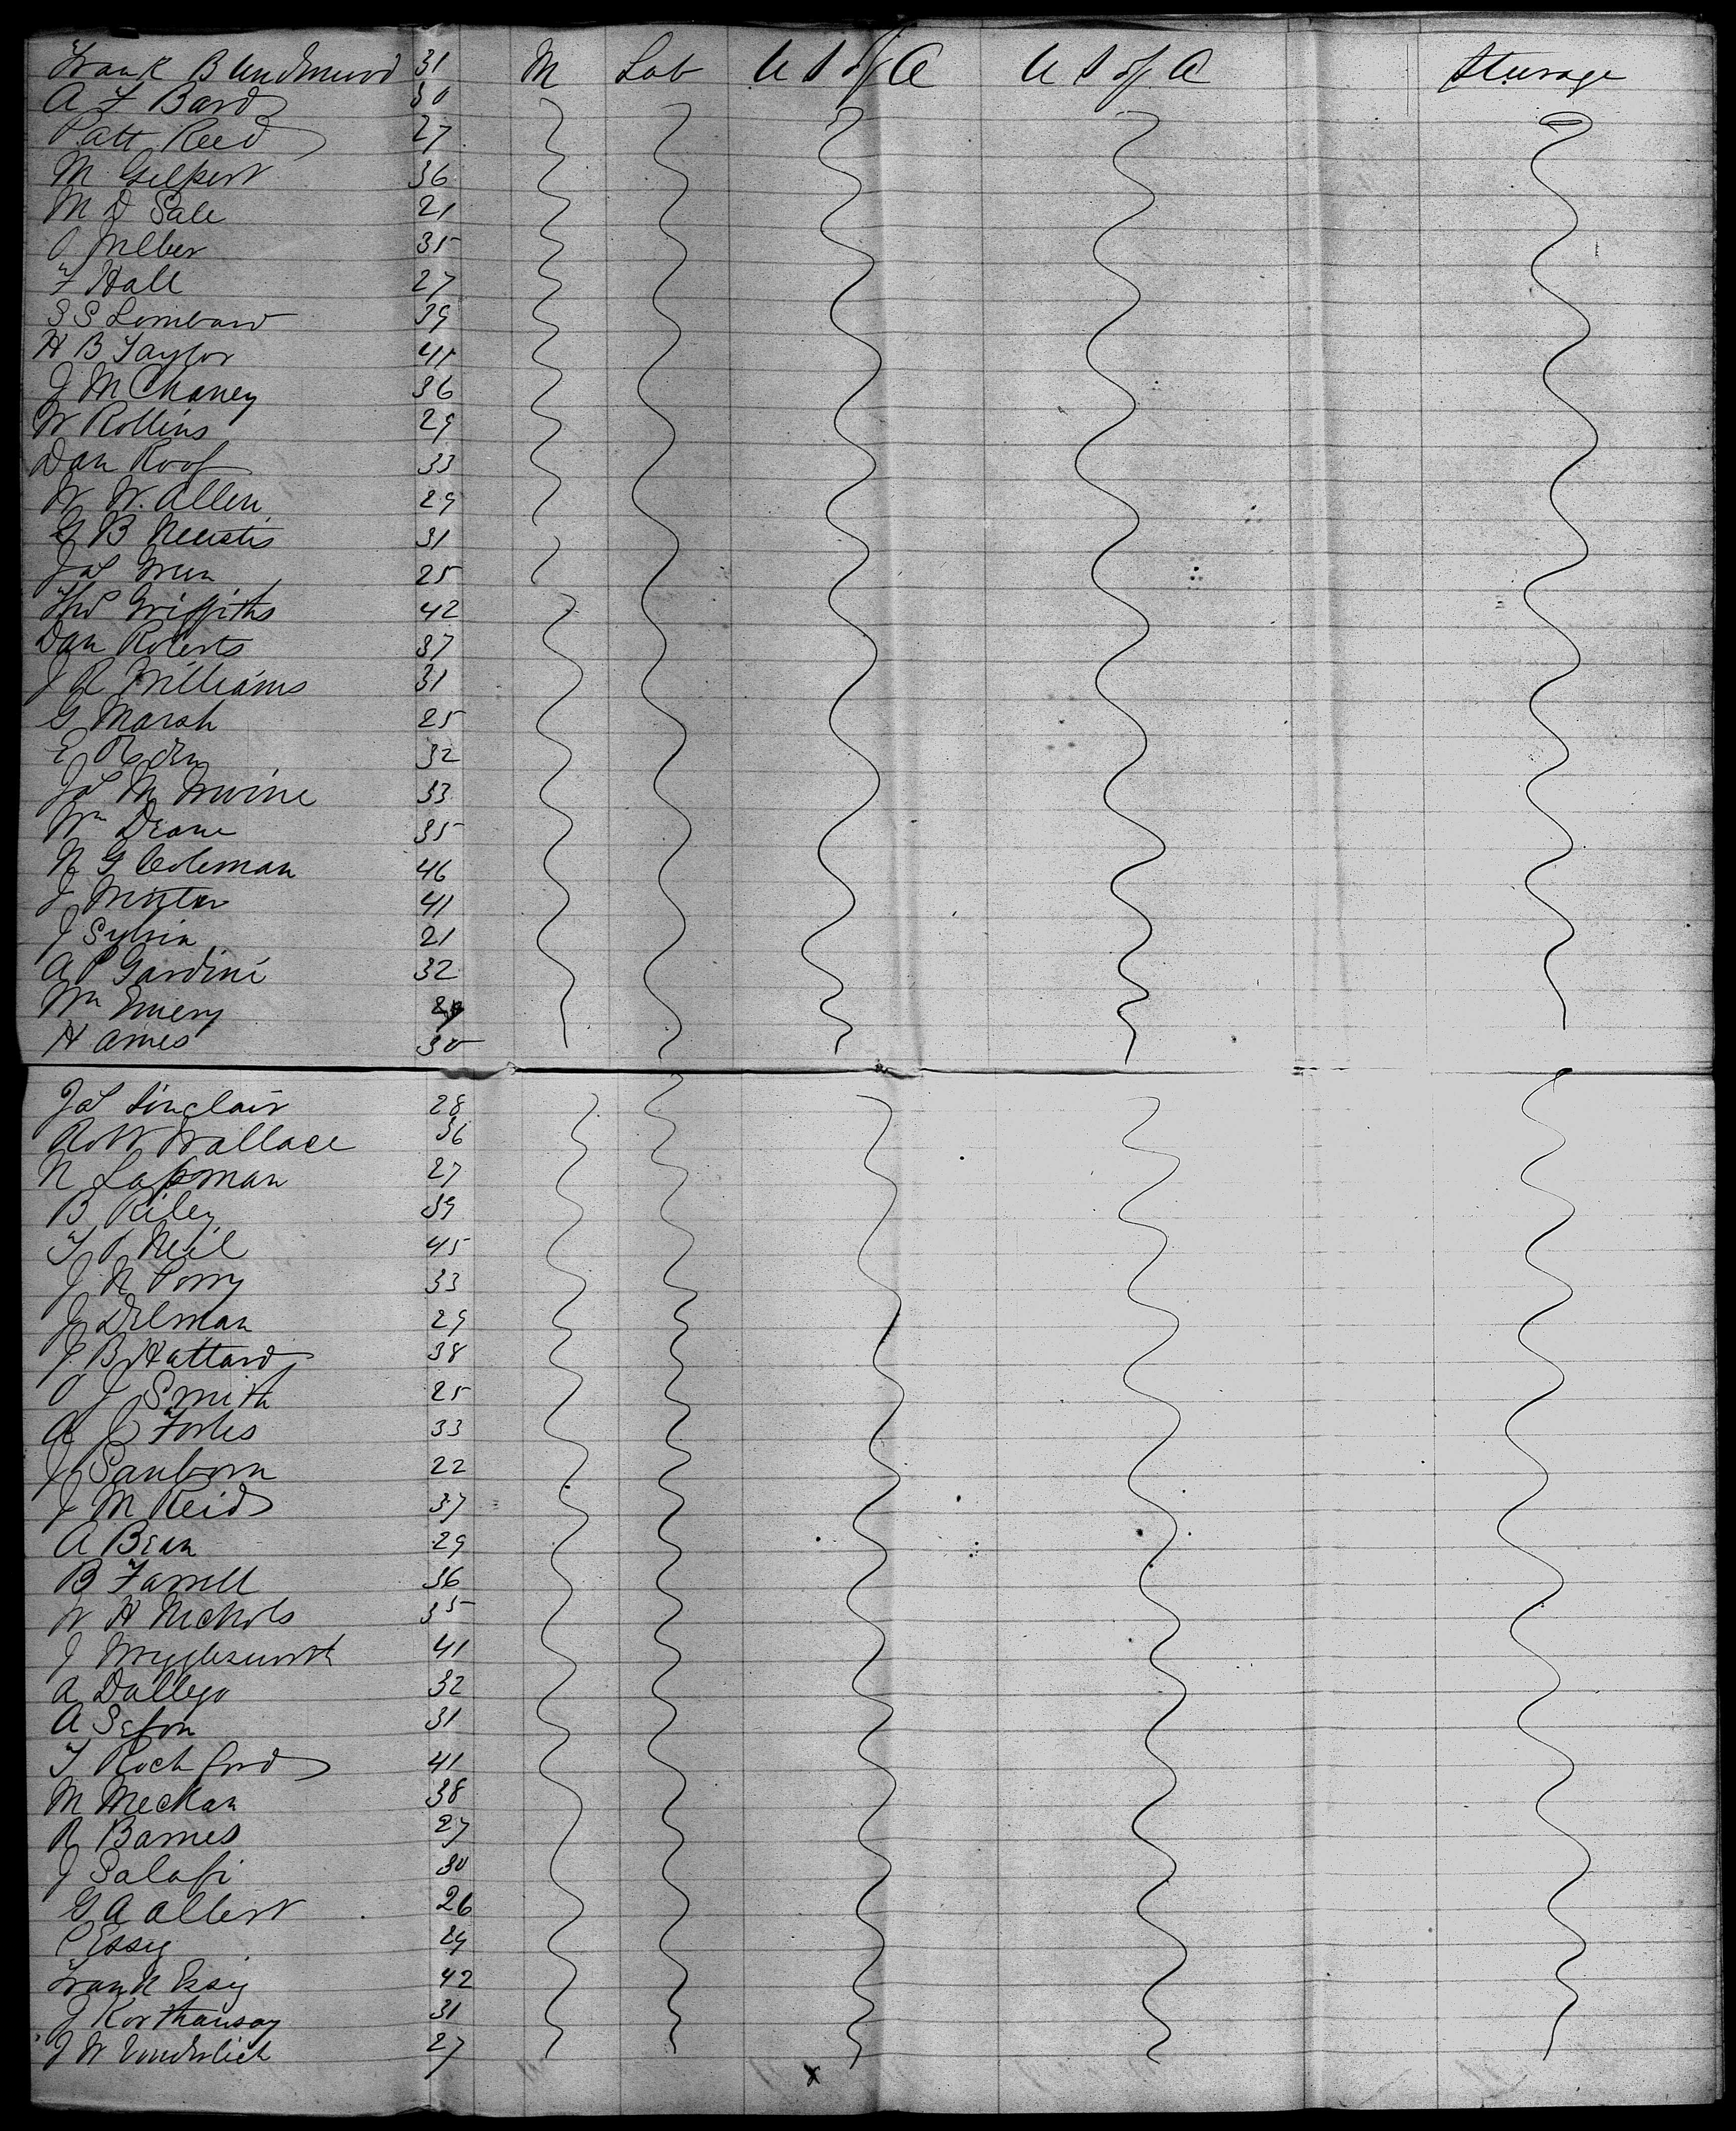 Frank B Underwood 31 M Lab U S of A U S of A Steerage
A F Bard 30
Patt Reed 27
M Gilpert 36
M D Sale 21
35
F Hall 27
S S Lombard 39
H B Taylor 41
J M Chaney 36
W Rollins 29
Dan Roof 33
W W. Allen 29
G B Neustis 31
Jas 25
Thos Griffiths 42
Dan Roberts 37
J R Williams 31
G Marsh 25
E Ogden 32
Jas M Irvine 33
Wm Deane 35
N G Coleman 46
J 41
J Sylvia 21
A P Gardini 32
Wm Emery
H Ames 30
Jas Sinclair 28
Robt Wallace 36
N Lapman 27
B Riley 39
T P Neil 45
J N Perry 33
J Delman 29
J B Hattard 38
O J Smith 25
A J Forbes 33
J Sanborn 22
J M Reid 37
A Bean 29
B Farrell 36
W H Nichols 35
J Wryglesworth 41
A Dallego 32
A Sefon 31
T Rochford 41
M Meckan 38
R Barnes 27
J Salafi 30
G A Albert 26
P Essig 29
Frank Essig 42
J Korthausay 31
J W Vunderlich 27
x